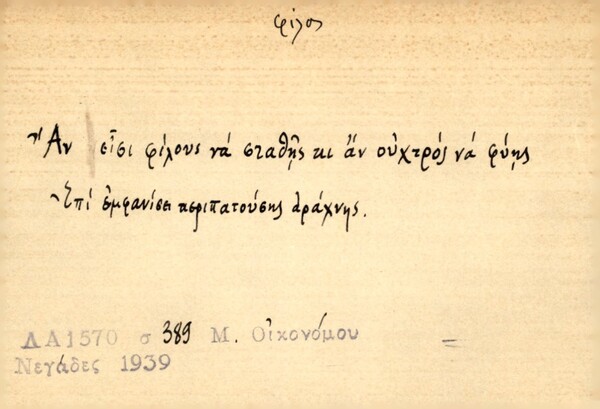 φίλος
Ἂν εἶσι φίλους νά σταθῇς κι ἄν οὐχτρός νά φύῃς
Ἐπί ἐμφανίσει περιπατούσης ἀράχνης.
ΛΑ1570 σ 389 Μ. Οἰκονόμου
Νεγάδες 1939